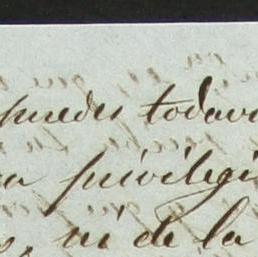 puedes todav
a privilegi
s, ni de la